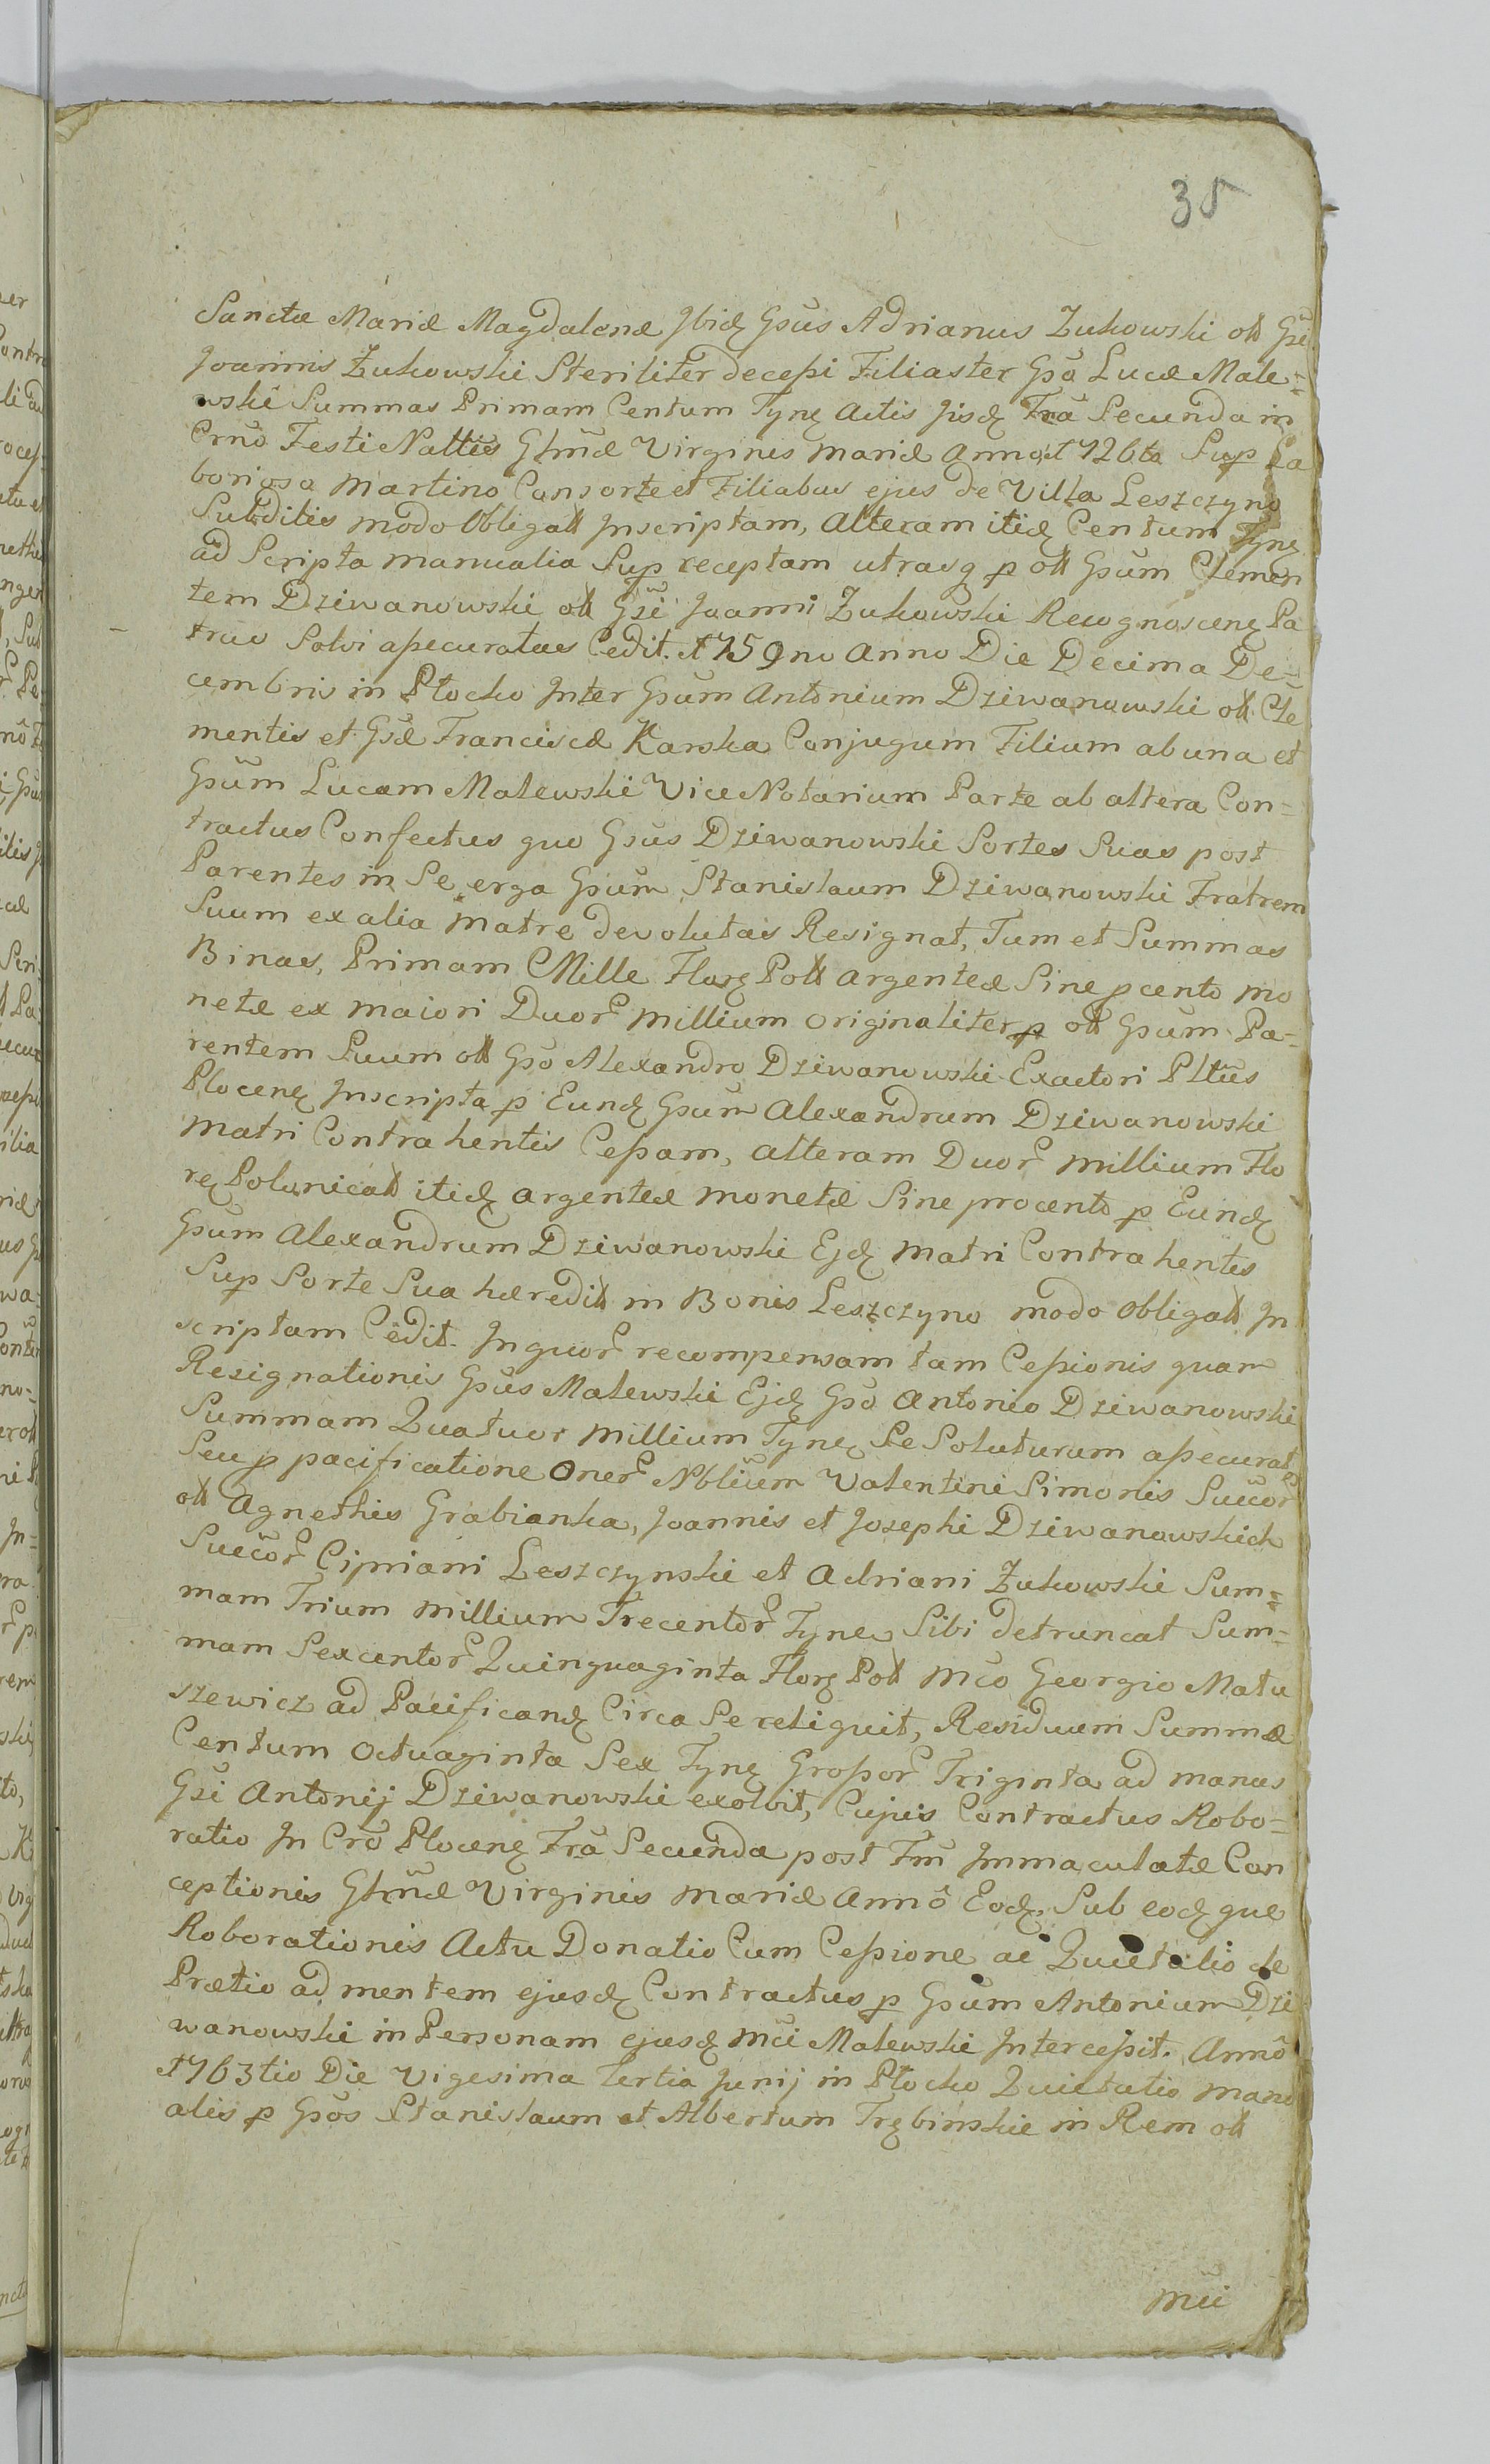 35
Sanctæ Mariæ Magdalenæ Ibid Gsūs Adrianus Żukowski olt Gsi
Joannis Żukowski Steriliter decessi Filiaster Gsō Lucæ Male=
wski Summas Primam Centum Tynf Actis Iisd Fra Secunda in
Crno Festi Nattis Glrnæ Virginis Mariæ Anno 1726to Sup La
boriosa Martino Consorte et Filiabus ejus de Villa Leszczyno
Subditis modo Obligatt Inscriptam, Alteram itid Centum Tynf
ad Scripta manualia Sup receptam utrasq p olt Gsum Clemen
tem Dziwanowski olt Gsi Joanni Żukowski Recognoscen Pa
truo Solvi assecuratas Cedit. 1759no Anno Die Decima De=
cembris in Płocko Inter Gsum Antonium Dziwanowski olt Cle
mentis et Gsæ Franciscæ Karska Conjugum Filium ab una et
Gsum Lucam Malewski Vice Notarium Parte ab altera Con=
tractus Confectus quo Gsus Dziwanowski Sortes Suas post
Parentes in Se, erga Gsum Stanislaum Dziwanowski Fratrem
Suum ex alia Matre devolutas Resignat, Tum et Summas
Binas, Primam Mille Flor Poll argenteæ Sine pcento mo
netæ ex maiori Duor Millium originaliter p olt Gsum Pa=
rentem Suum olt Gso Alexandro Dziwanowski Exactori Pltūs
Plocen Inscripta p Eund Gsum Alexandrum Dziwanowski
Matri Contrahentis Cessam, alteram Duor Millium Flo
re Polonicatt itid argenteæ monetæ Sine procento p Eund
Gsum Alexandrum Dziwanowski Ejd Matri Contrahentis
Sup Sorte Sua hæreditt in Bonis Leszczyno modo Obligatt In
scriptam Cedit. In quor recompensam tam Cessionis quam
Resignationis Gsus Malewski Ejd Gso Antonio Dziwanowski
Summam Quatuor Millium Tynf Se Soluturum assecurat,
Seu p pacificatione Oner Nblium Valentini Simonis Succor
olt Agnethis Grabianka, Joannis et Josephi Dziwanowskich
Succor Cipriani Leszczynski et Adriani Żukowski Sum=
mam Trium Millium Trecentor Tynf Sibi detruncat Sum=
mam Sexcentor Quinquaginta Flor Poll Mco Georgio Matu
szewicz ad Pacificand Circa Se reliquit, Residuum Summæ
Centum Octuaginta Sex Tynf Grossor Triginta ad manus
Gsi Antonij Dziwanowski exolvit, Cujus Contractus Robo=
ratio In Cro Plocen Fra Secunda post Fm Immaculatæ Con
ceptionis Glrnæ Virginis Mariæ Anno Eod. Sub eod que
Roborationis Actu Donatio Cum Cessione ac Quietatio de
Prætio ad mentem ejusd Contractus p Gsum Antonium Dzi
wanowski in Personam ejusd Mci Malewski Intercessit. Anno
1763tio Die Vigesima Tertia Junij in Płocko Quietatio manu
alis p Gsos Stanislaum et Albertum Trębinskie in Rem olt
Mci